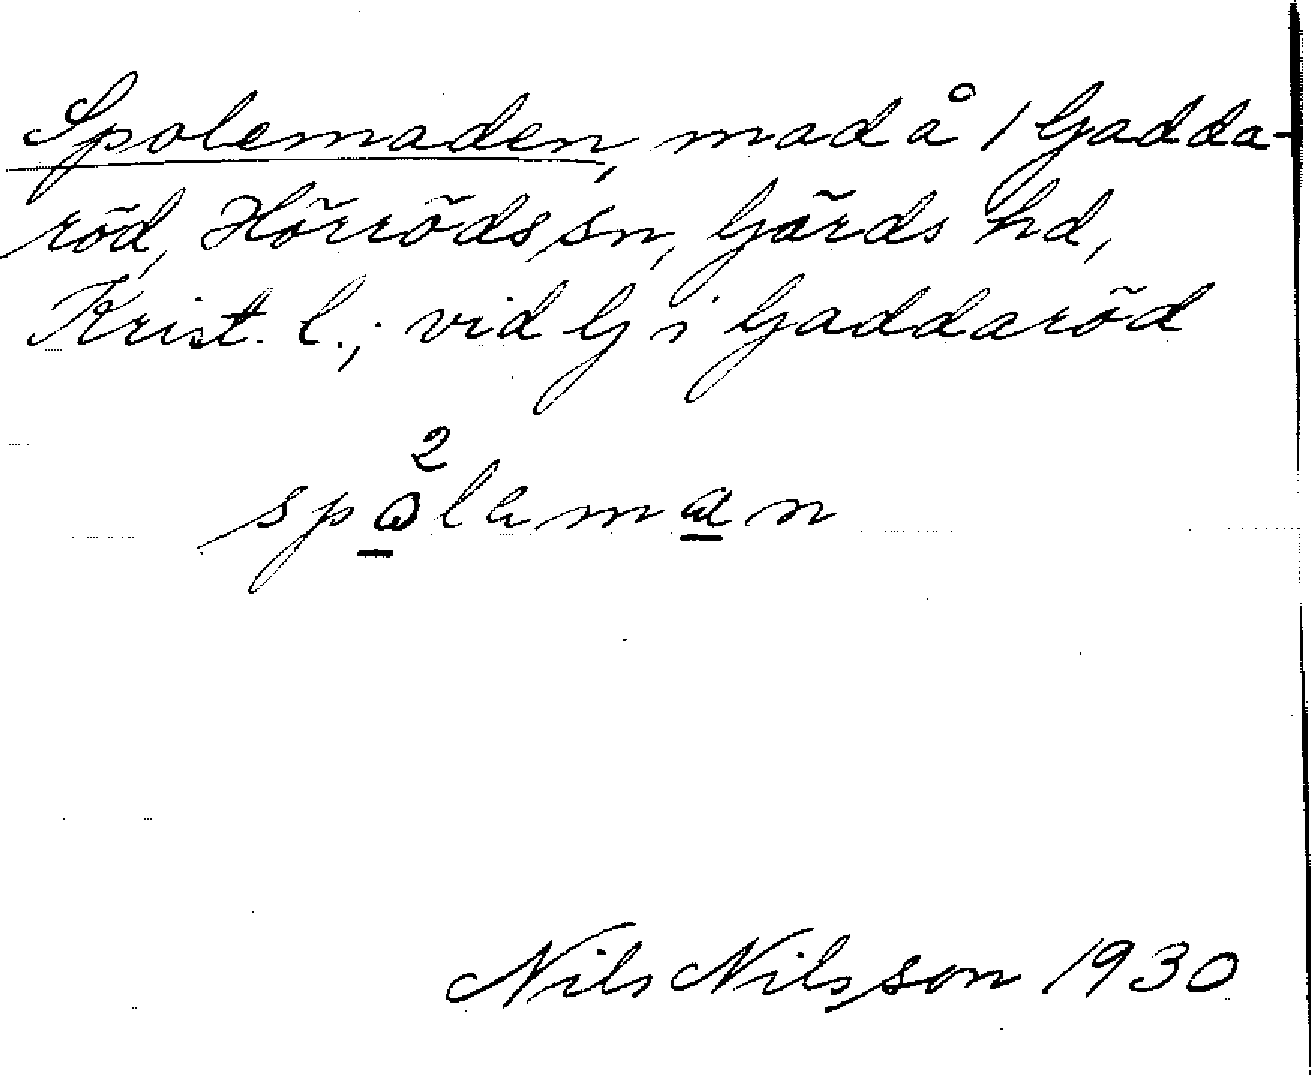 Spolemaden, mad å 1 Gadda-
röd, Hörröds sn, Gärds hd,
Krist. l.; vid G i Gaddaröd
2
spålaman
Nils Nilsson 1930